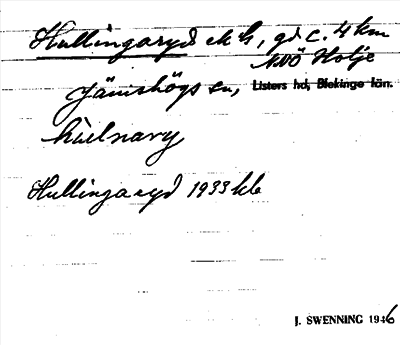 Hullingaryd ek h, gd c. 4 km
NNÖ Holje
Jämshögs sn, Listers hd, Blekinge län.
Hullingaryd 1933 kb
J. SWENNING 1946